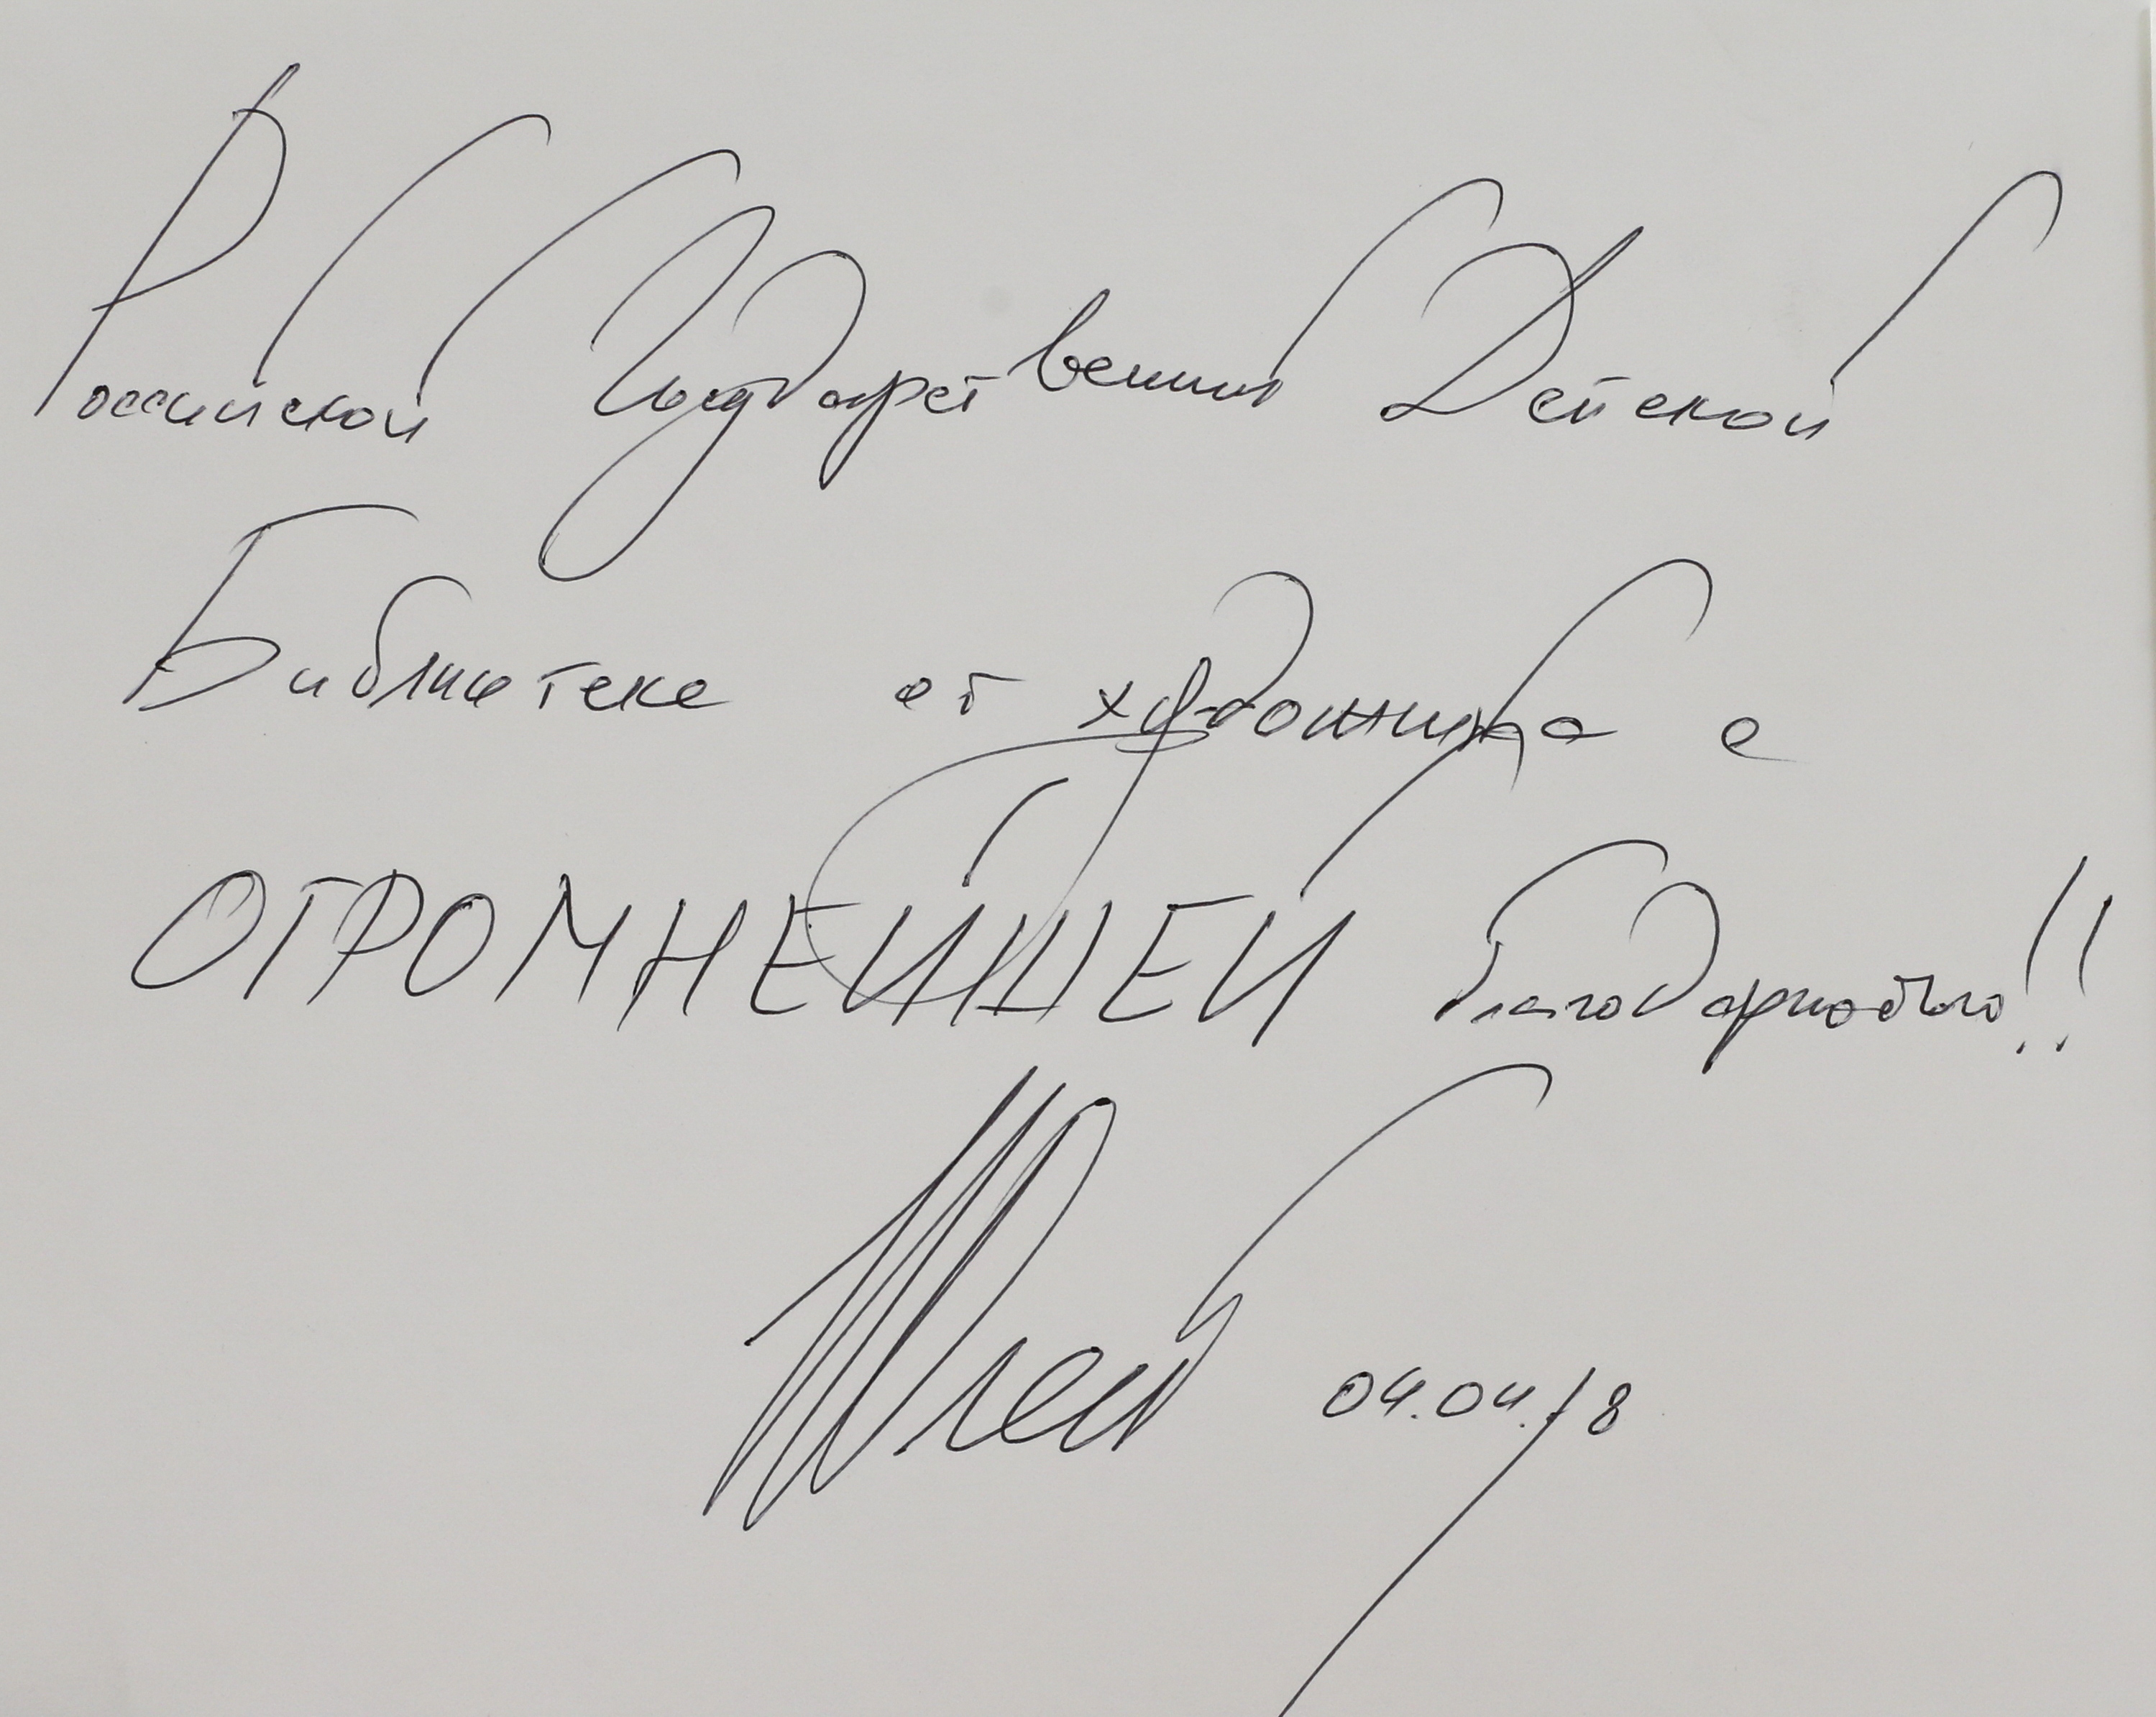 Российской Государственной Детской
Библиотеке от художника с
ОГРОМНЕЙШЕЙ благодарностью!!
04.04.18